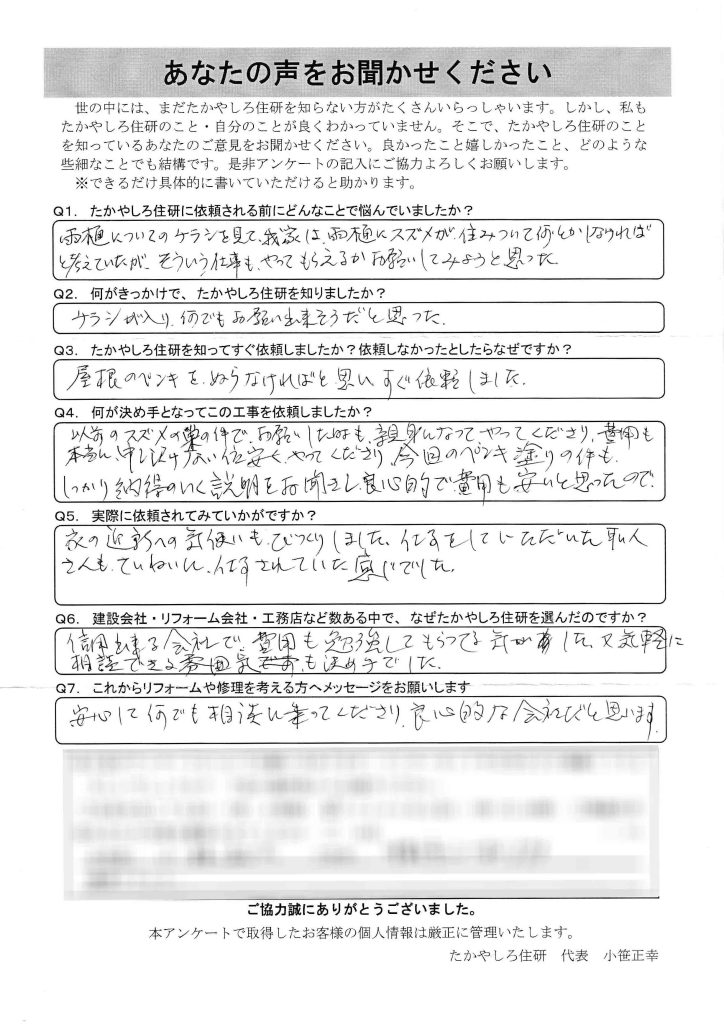 あなたの声をお聞かせください
世の中には、まだたかやしろ住研を知らない方がたくさんいらっしゃいます。しかし、私も
たかやしろ住研のこと・自分のことが良くわかっていません。そこで、たかやしろ住研のこと
を知っているあなたのご意見をお聞かせください。良かったこと嬉しかったこと、どのような
些細なことでも結構です。是非アンケートの記入にご協力よろしくお願いします。
※できるだけ具体的に書いていただけると助かります。
Q1. たかやしろ住研に依頼される前にどんなことで悩んでいましたか？
雨樋についてのケラシを見て、我家は、雨樋にスズメが住みついて何とかしなければ
と考えていたが、そういう仕事も、やってもらえるかお願いしてみようと思った
Q2. 何がきっかけで、たかやしろ住研を知りましたか？
ケラシが入り、何でもお願い出来そうだと思った。
Q3. たかやしろ住研を知ってすぐ依頼しましたか？依頼しなかったとしたらなぜですか？
屋根のペンキを、ぬらなければと思いすぐ依頼しました。
Q4. 何が決め手となってこの工事を依頼しましたか？
以前のスズメの巣の件で、お願いした時も、親身になってやってくださり、費用も
本当に、申し訳け ない位安く、やってくださり 今回のペンキ塗りの件も、
しっかり納得のいく説明をお聞きし、良心的で、費用も安いと思ったので、
Q5. 実際に依頼されてみていかがですか？
家の近所への気使いも、びっくりしました、仕事をしていただいた職人
さんも、ていねいに、仕事されていた感じでした。
Q6. 建設会社・リフォーム会社・工務店など数ある中で、なぜたかやしろ住研を選んだのですか？
信用出来る会社で、費用も勉強してもらってる気がました、又気軽に
相談できる雰囲気です、も決め手でした。
Q7. これからリフォームや修理を考える方へメッセージをお願いします
安心して何でも相談に乗ってくださり、良心的な会社だと思います。
ご協力誠にありがとうございました。
本アンケートで取得したお客様の個人情報は厳正に管理いたします。
たかやしろ住研 代表 小笹正幸